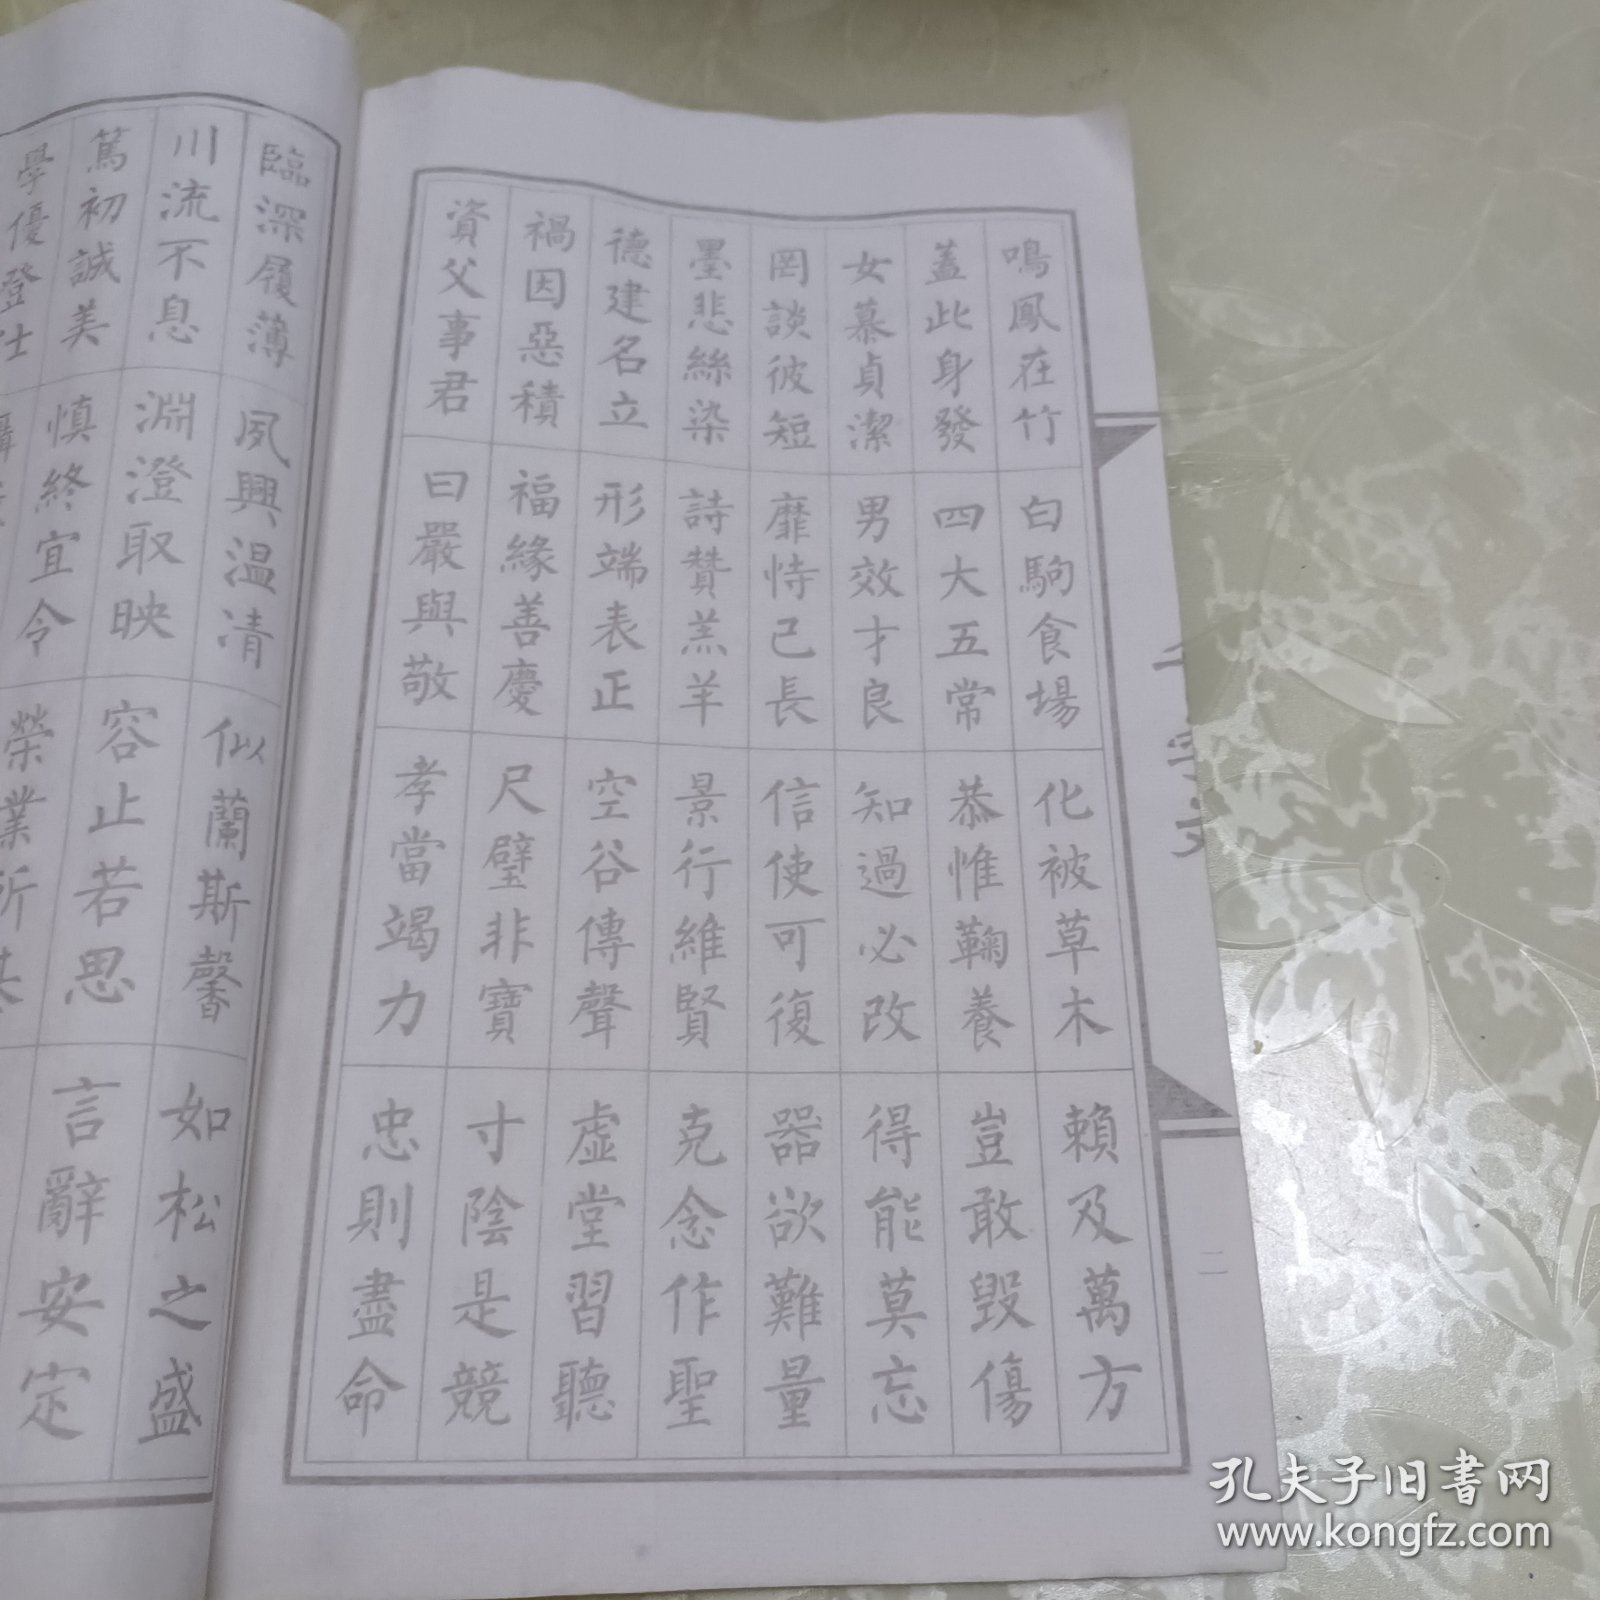 鳴鳳在竹 白駒食場 化被草木 賴及萬方
蓋此身發 四大五常 恭惟鞠養 豈敢毀傷
女慕貞潔 男效才良 知過必改 得能莫忘
罔談彼短 靡恃己長 信使可復 器欲難量
墨悲絲染 詩贊羔羊 景行維賢 克念作聖
德建名立 形端表正 空谷傳聲 虛堂習聽
禍因惡積 福緣善慶 尺璧非寶 寸陰是競
資父事君 曰嚴與敬 孝當竭力 忠則盡命
二
臨深履薄 夙興温凊 似蘭斯馨 如松之盛
川流不息 淵澄取映 容止若思 言辭安定
篤初誠美 慎終宜令 榮業所基
學優登仕
孔夫子旧书网
www.kongfz.com